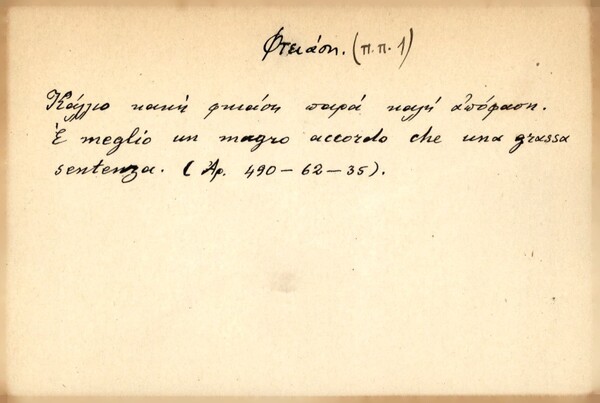 Φτειάση. (π.π. 1)
Κάλλιο κακή φτιάση παρά καλή ἀπόφαση.
È meglio un magro accordo che una grassa
sentenza. (Ἀρ. 490-62-35).